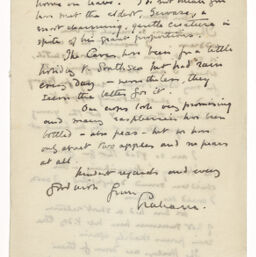 home on leave. I do not think you
has met the eldest, Gervase, a
most charming, gentle creature in
spite of his giant proportions.
The Careys has been for a little
holiday to Southsea but had rain
every day — nevertheless, they
the better for it.
Our crops look very promising
and many raspberries have been
bottled — also peas — but we have
only about two apples and no pears
at all.
kindest regards and every
good wish from
Grahame.